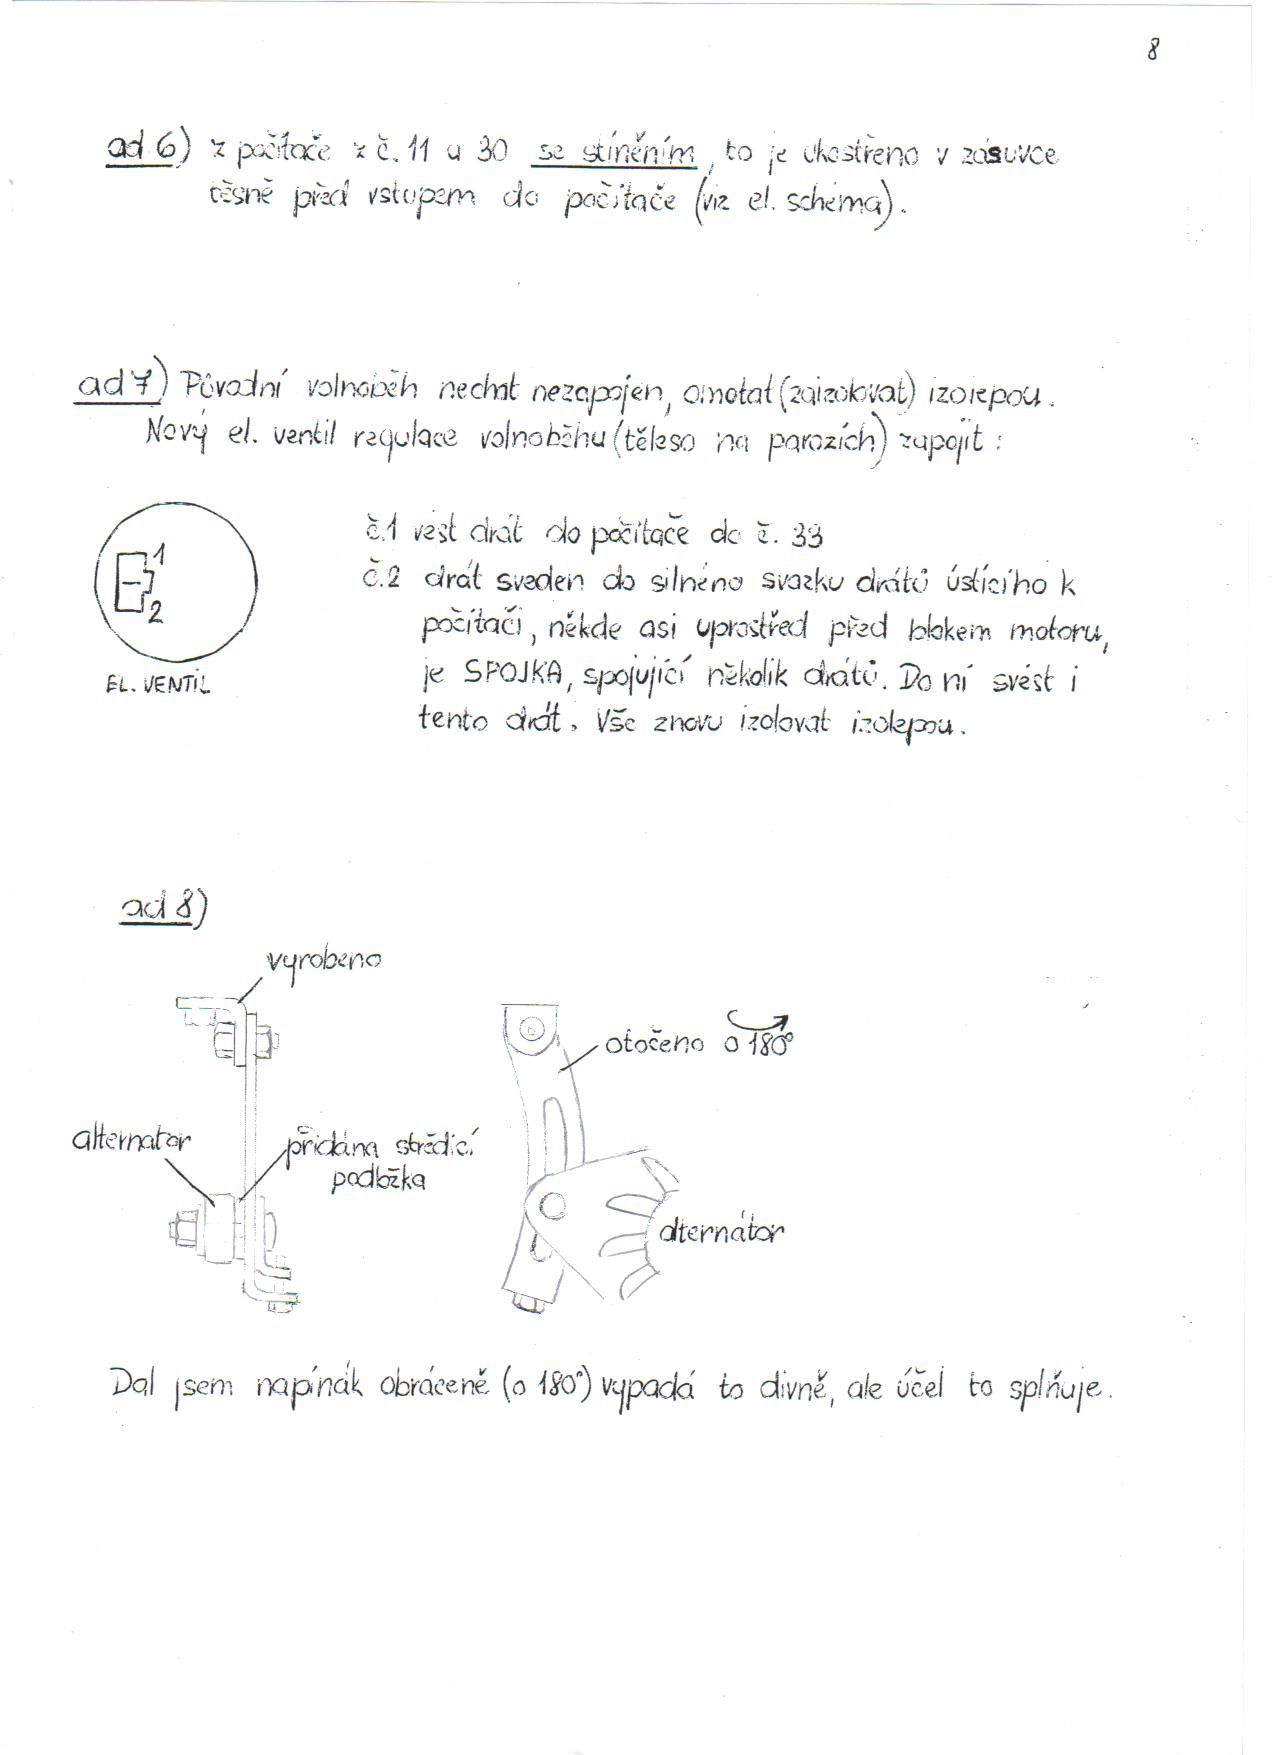 8
ad 6) z počítače z č. 11 a 30 se stíněním, to je ukostřeno v zásuvce
těsně před vstupem do počítače (viz el. schéma).
ad 7) Původní volnoběh nechat nezapojen, omotat (zaizolovat) izolepou.
Nový el. ventil regulace volnoběhu (těleso na parozích) zapojit :
1
2
EL. VENTIL
č.1 vést drát do počítače do č. 33
č.2 drát sveden do silného svazku drátů ústícího k
počítači, někde asi uprostřed před blokem motoru,
je SPOJKA, spojující několik drátů. Do ní svést i
tento drát. Vše znovu izolovat izolepou.
ad 8)
vyrobeno
otočeno o 180°
alternator
přidána středicí
podložka
alternátor
Dal jsem napínák obráceně (o 180°) vypadá to divně, ale účel to splňuje.